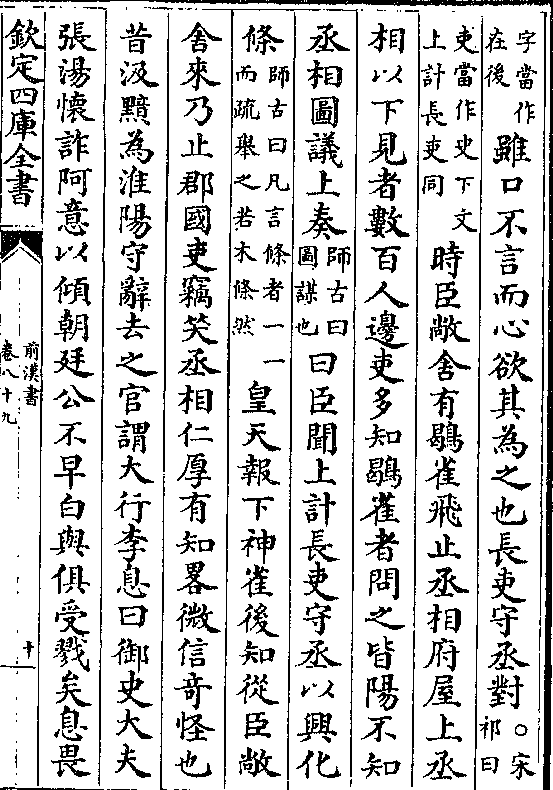 字當作在後雖口不言而心欲其為之也長吏守丞對○宋祁曰
吏當作史下文上計長吏同時臣敞舍有鶡雀飛止丞相府屋上丞
相以下見者數百人邊吏多知鶡雀者問之皆陽不知
丞相圖議上奏師古曰圖謀也曰臣聞上計長吏守丞以興化
條師古曰凡言條者一一而疏舉之若木條然皇天報下神雀後知從臣敞
舍來乃止郡國吏竊笑丞相仁厚有知畧微信奇怪也
昔汲黯為淮陽守辭去之官謂大行李息曰御史大夫
張湯懷詐阿意以傾朝廷公不早白與俱受戮矣息畏
欽定四庫全書
前漢書
卷八十九
十